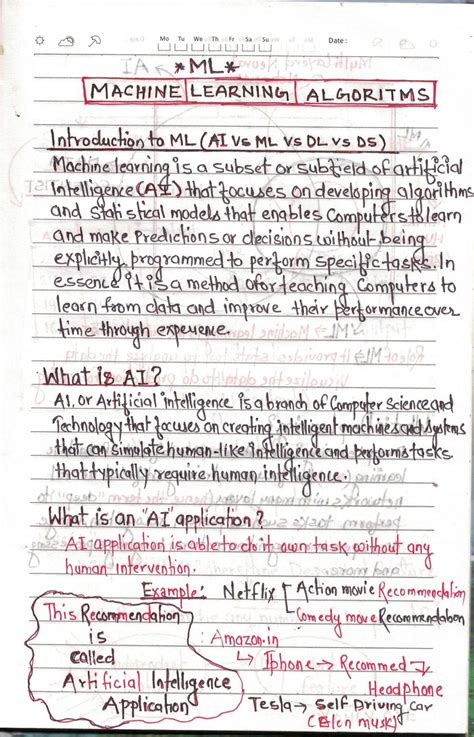 Mo Tu We Th Fr Sa Su Date:
*ML*
MACHINE LEARNING ALGORITMS
Introduction to ML (AI Vs ML Vs DL vs DS)
Machine learning is a subset or subfield of artificial
Intelligence (AI) that focuses on developing algorithms
and statistical models that enables Computers to learn
and make predictions or decisions without being
explicitly programmed to perform specific tasks. In
essence it is a method of or teaching Computers to
learn from data and improve their performance over
time through experience.
What is AI?
AI, or Artificial intelligence is a branch of Computer Science and
Technology that focuses on creating intelligent machines and systems
that can simulate human-like intelligence and perform tasks
that typically require human intelligence.
What is an "AI" application?
AI application is able to do it own task without any
human intervention.
Example: Netflix [ Action movie Recommendation
Comedy movie Recommendation
This Recommendation
is
called
Artificial Intelligence
Application
: Amazon.in
↳ Iphone → Recommed ↴
Headphone
Tesla → Self Driving Car
(Elon musk)